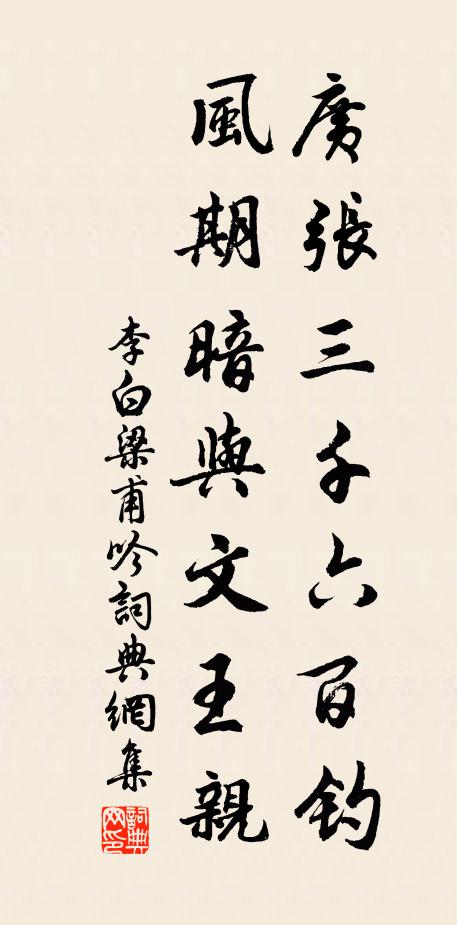 廣張三千六百釣
風期暗與文王親
李白梁甫吟詞典網集
詞典网印